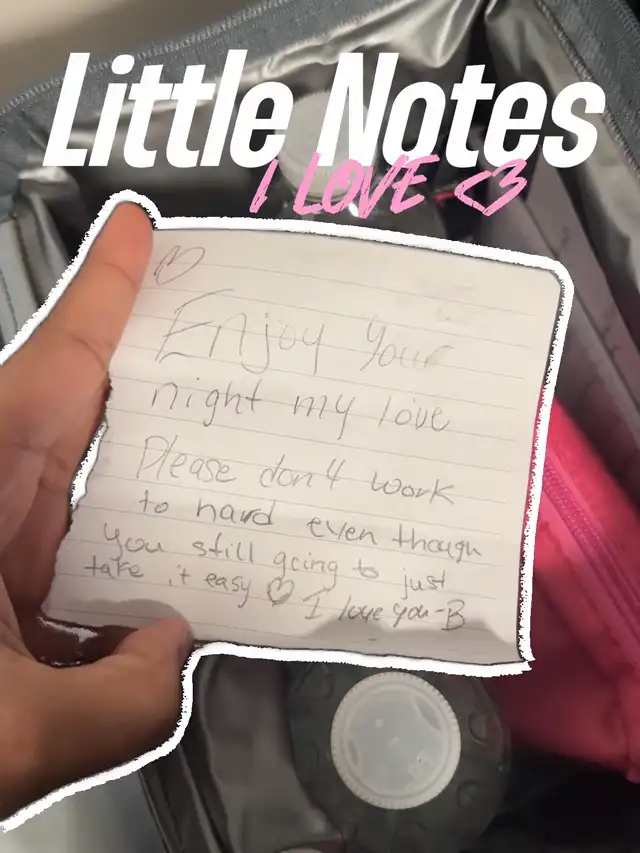 Little Notes
I LOVE <3
Enjoy Your
night my love
Please don't work
to hard even though
you still going to just
take it easy ♡ I love you -B